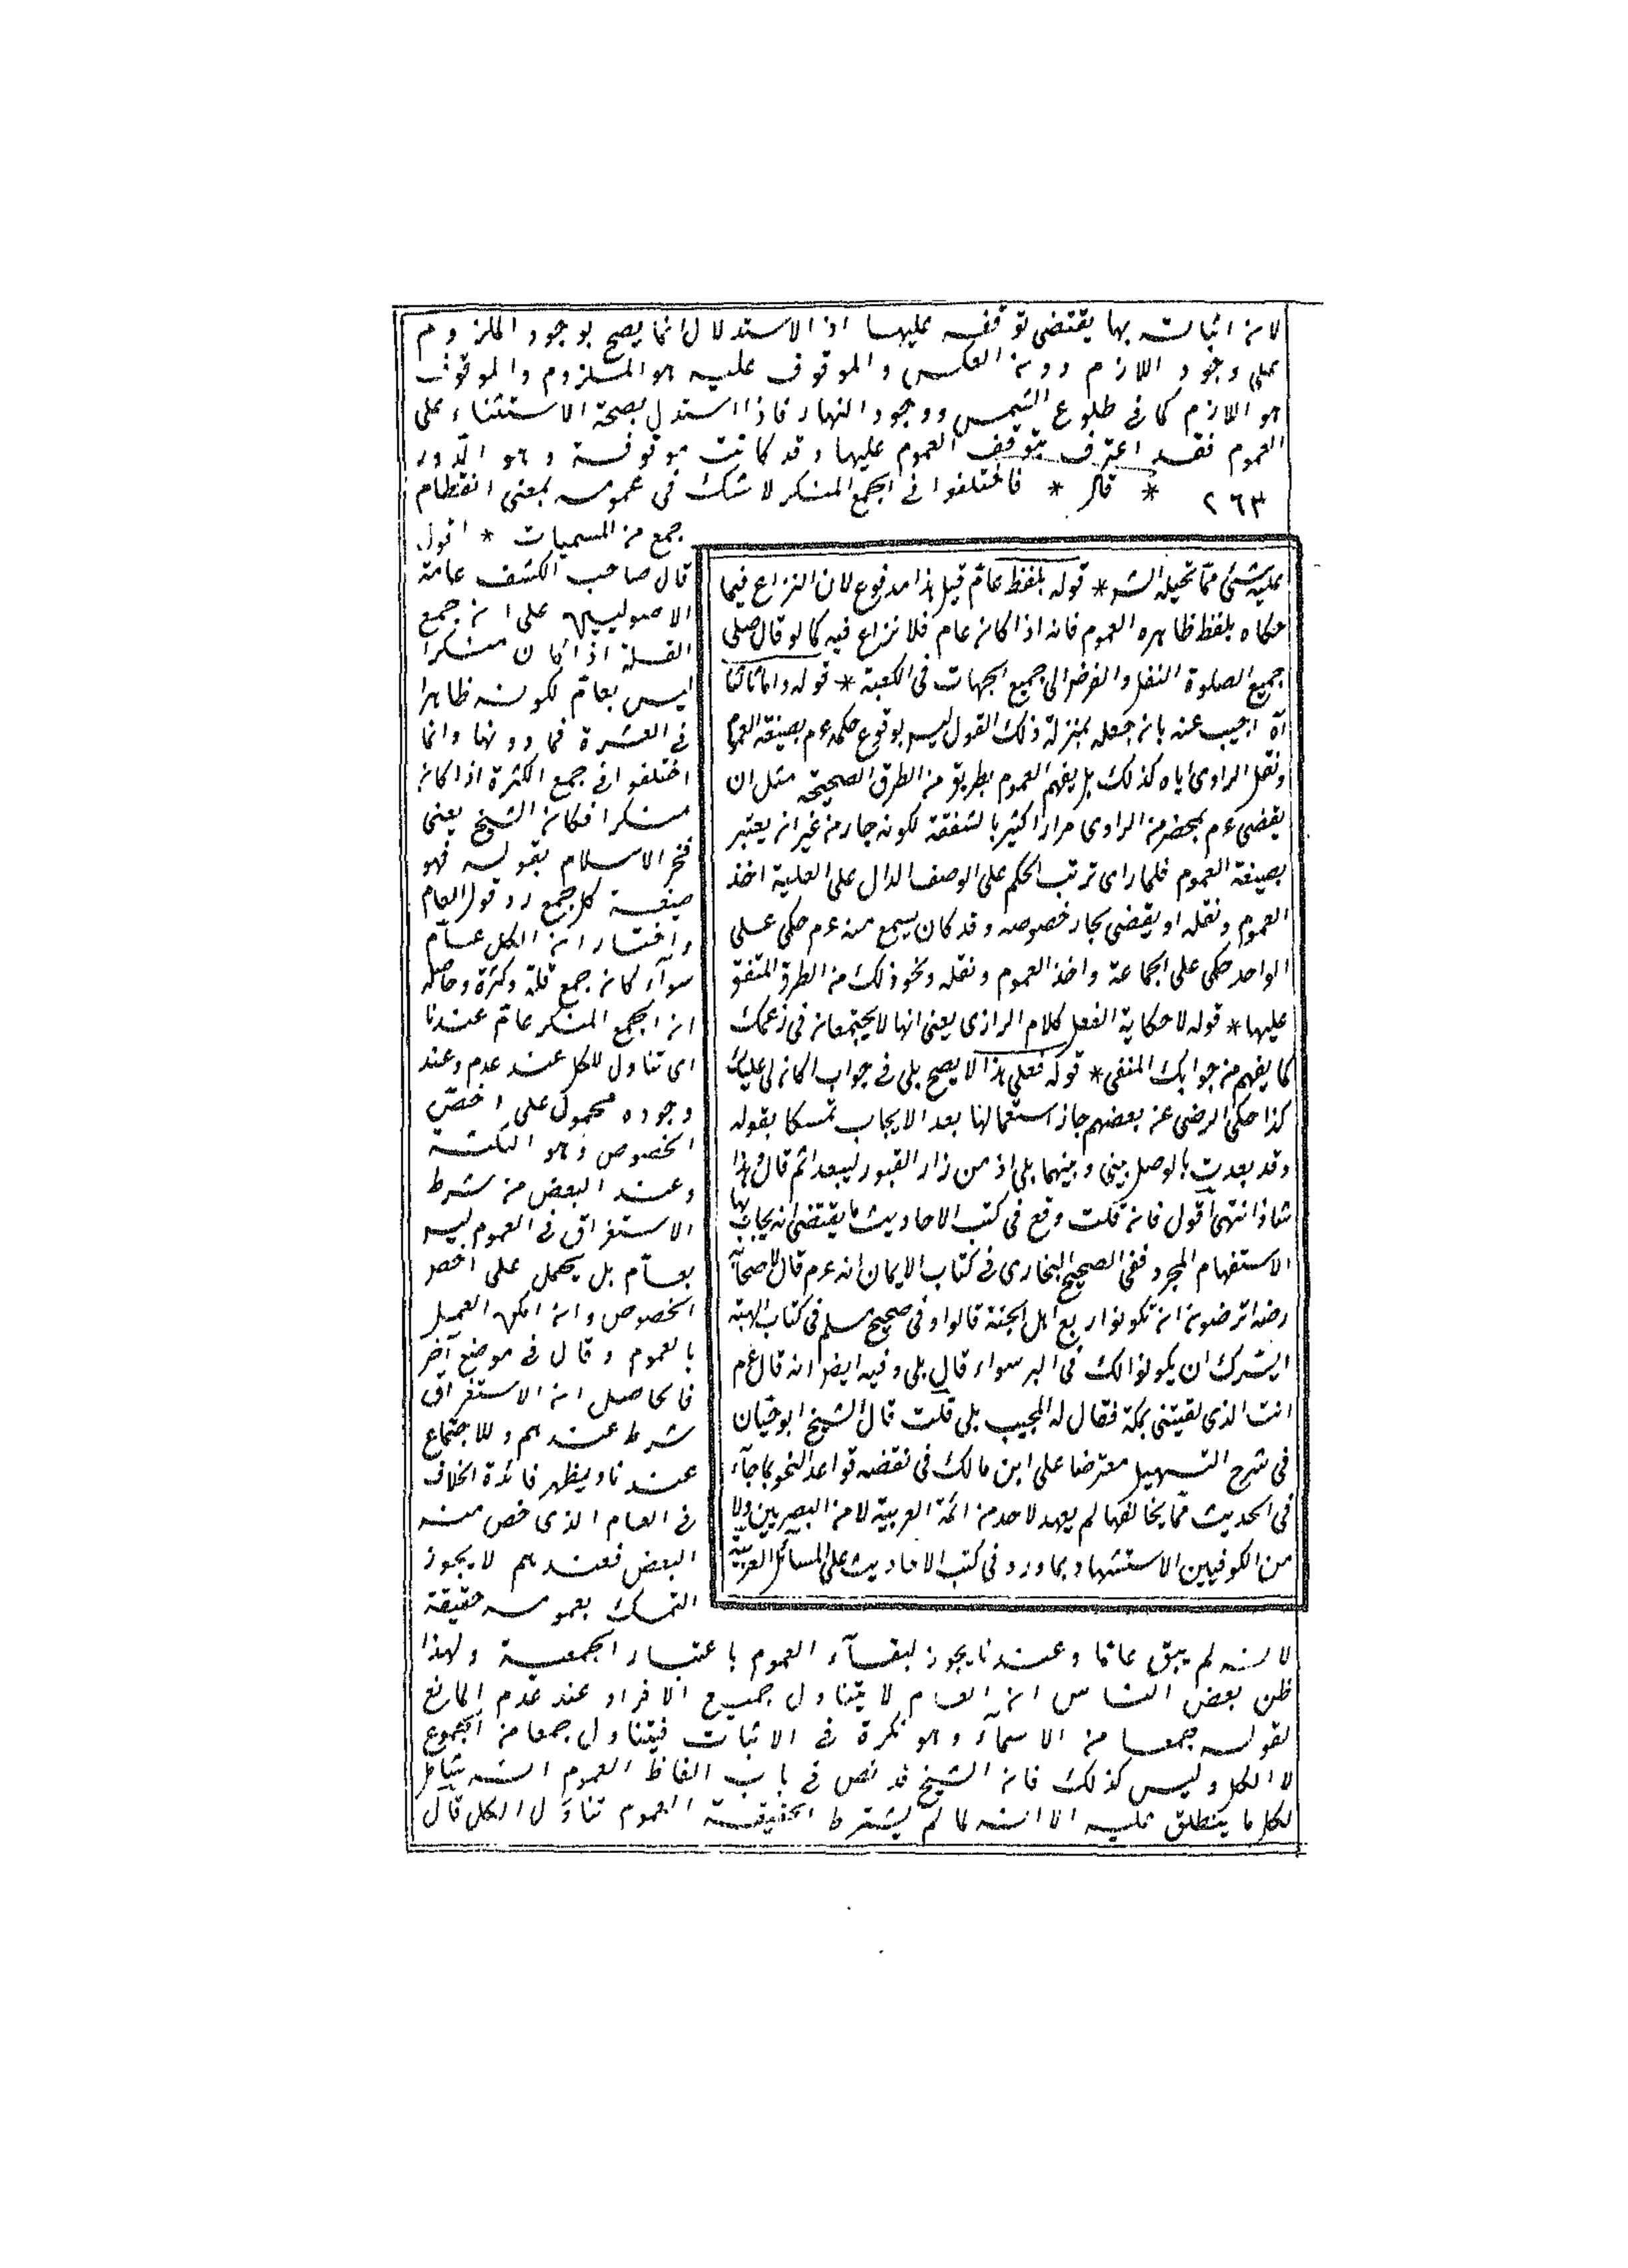 لان اثباته بها يقتضى توقفه عليها اذ الاستدلال انما يصح بوجود الملزوم
على وجود اللازم دون العكس والموقوف عليه هو المستلزم والموقوف
هو اللازم كما فى طلوع الشمس ووجود النهار فاذا استدل بصحة الاستثناء على
العموم فقد اعترف بتوقف العموم عليها وقد كانت موقوفة وهو الدور
٢٦٣ * قال * فاختلفوا فى الجمع المنكر لا شك فى عمومه بمعنى انتظام
جمع من المسميات * اقول
قال صاحب الكشف عامة
الاصوليين على ان جمع
القلة اذا كان منكرا
ليس بعام لكونه ظاهرا
فى العشرة فما دونها وانما
اختلفوا فى جمع الكثرة اذا كان
منكرا فكان الشيخ يعنى
فخر الاسلام بقوله فهو
صيغة كل جمع رد قول العام
واختار ان الكل عام
سوآء كان جمع قلة وكثرة وحاصله
ان الجمع المنكر عام عندنا
اى تناول للكل عند عدم وعند
وجوده محمول على اخص
الخصوص وهو الثلثة
وعند البعض من شرط
الاستغراق فى العموم ليس
بعام بل يحمل على اخص
الخصوص وان امكن العمل
بالعموم وقال فى موضع آخر
فالحاصل ان الاستغراق
شرط عندهم وللاجتماع
عندنا ويظهر فائدة الخلاف
فى العام الذى خص منه
البعض فعندهم لا يجوز
التمسك بعمومه حقيقة
لانه لم يبق عاما وعندنا يجوز لبقآء العموم باعتبار الجمعية ولهذا
ظن بعض الناس ان العام لا يتناول جميع الافراد عند عدم المانع
لقوله جمعا من الاسمآء وهو نكرة فى الاثبات فيتناول جمعا من الجموع
لا الكل وليس كذلك فان الشيخ قد نص فى باب الفاظ العموم انه شامل
لكل ما ينطلق عليه الا انه لما لم يشترط لحقيقة العموم تناول الكل قال
عليه شئ مما تحيله الش * قوله بلفظ عام قيل هذا مدفوع لان النزاع فيما
حكاه بلفظ ظاهره العموم فانه اذا كان عام فلا نزاع فيه كما لو قال صلى
جميع الصلوة النفل والفرض الى جميع الجهات فى الكعبة * قوله واما ثالثا
آه اجيب عنه بان جعله بمنزلة ذلك القول ليس بوقوع حكمه عم بصيغة العموم
ونقل الراوى اياه كذلك بل يفهم العموم بطريق من الطرق الصحيحة مثل ان
يقضى عم بمحضر من الراوى مرارا كثيرا بالشفعة لكونه جارا من غير ان يعتبر
بصيغة العموم فلما راى ترتب الحكم على الوصف الدال على العلية اخذ
العموم ونقله او يقضى بجار خصوصه وقد كان يسمع منه عم حكمى على
الواحد حكمى على الجماعة واخذ العموم ونقله ونحو ذلك من الطرق المتفق
عليها * قوله لا حكاية الفعل كلام الرازى يعنى انها لا يجتمعان فى زعمك
كما يفهم من جوابك المنفى * قوله فعلى هذا لا يصح بلى فى جواب اكان لى عليك
كذا حكى الرضى عن بعضهم جاز استعمالها بعد الايجاب تمسكا بقوله
وقد بعدت بالوصل بينى وبينها بلى اذ من زار القبور ليبعدا ثم قال وهذا
شاذ انتهى اقول فان قلت وقع فى كتب الاحاديث ما يقتضى انه يجاب بها
الاستفهام المجرد ففى الصحيح البخارى فى كتاب الايمان انه عم قال لاصحابه
رضه اترضون ان تكونوا ربع اهل الجنة قالوا وفى صحيح مسلم فى كتاب الهبة
ايسرك ان يكونوا لك فى البر سواء قال بلى وفيه ايضا انه قال عم
انت الذى لقيتنى بمكة فقال له المجيب بلى قلت قال الشيخ ابو حيان
فى شرح التسهيل معترضا على ابن مالك فى نقضه قواعد النحو بما جآء
فى الحديث مما يخالفها لم يعهد لاحد من ائمة العربية لا من البصريين ولا
من الكوفيين الاستشهاد بما ورد فى كتب الاحاديث على المسائل العربية